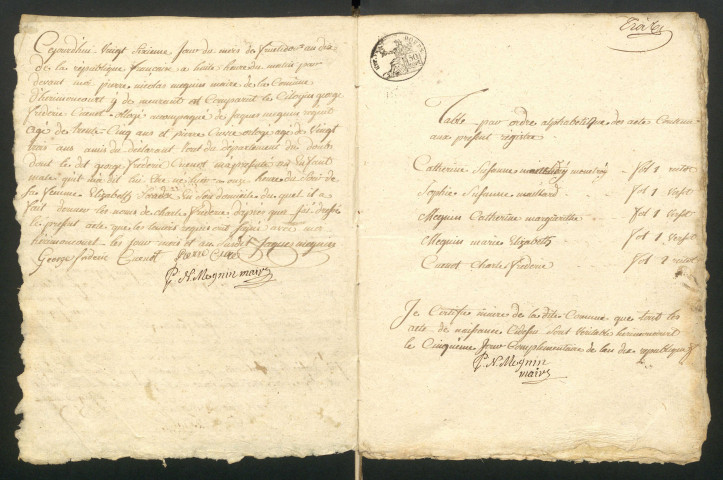 Cejourdhui Vingt Sixieme Jour du mois de fructidor an dix
de la republique francaise a huite heure du matin par
devant moi pierre nicolas mequin maire de la Commune
d'herimoncourt est Comparut le Citoyen george
frederic Curnot acompagné de Jaques mequin regent
agé de trente Cinq ans et pierre Curie agé de Vingt
trois ans amis du declarant tous du departement du doubs
dont le dit george frederic Curnot ma presenté un Enfant
male quil ma dit Etre né hier onze heure du Soir de
sa femme Elizabeth en Son domicile du quel il a
fait donner les noms de Charle fredéric dapres quoi jai dressé
le present acte que les temoins ont Signé avec moi
herimoncourt les Jour mois et an Susdit Jaques mequin
George frideric Curnot pierre Curie
P. N. Megnin maire
Table par ordre alphabetique des acte Contenu
aux present registre
Catherine Susanne fol 1 rectot
Sophie Susanne maillard fol 1 Versot
Mequin Catherine margueritte fol 1 Versot
Mequin marie Elizabeth fol 1 Versot
Curnot Charle fréderic fol 2 rectot
Je Certifie maire de la dite Commune que tout les
acte de naissance Cidessus Sont Veritable herimoncourt
le Cinquieme Jour Complimentaire de lan dix republiquain
P. N. Megnin
maire